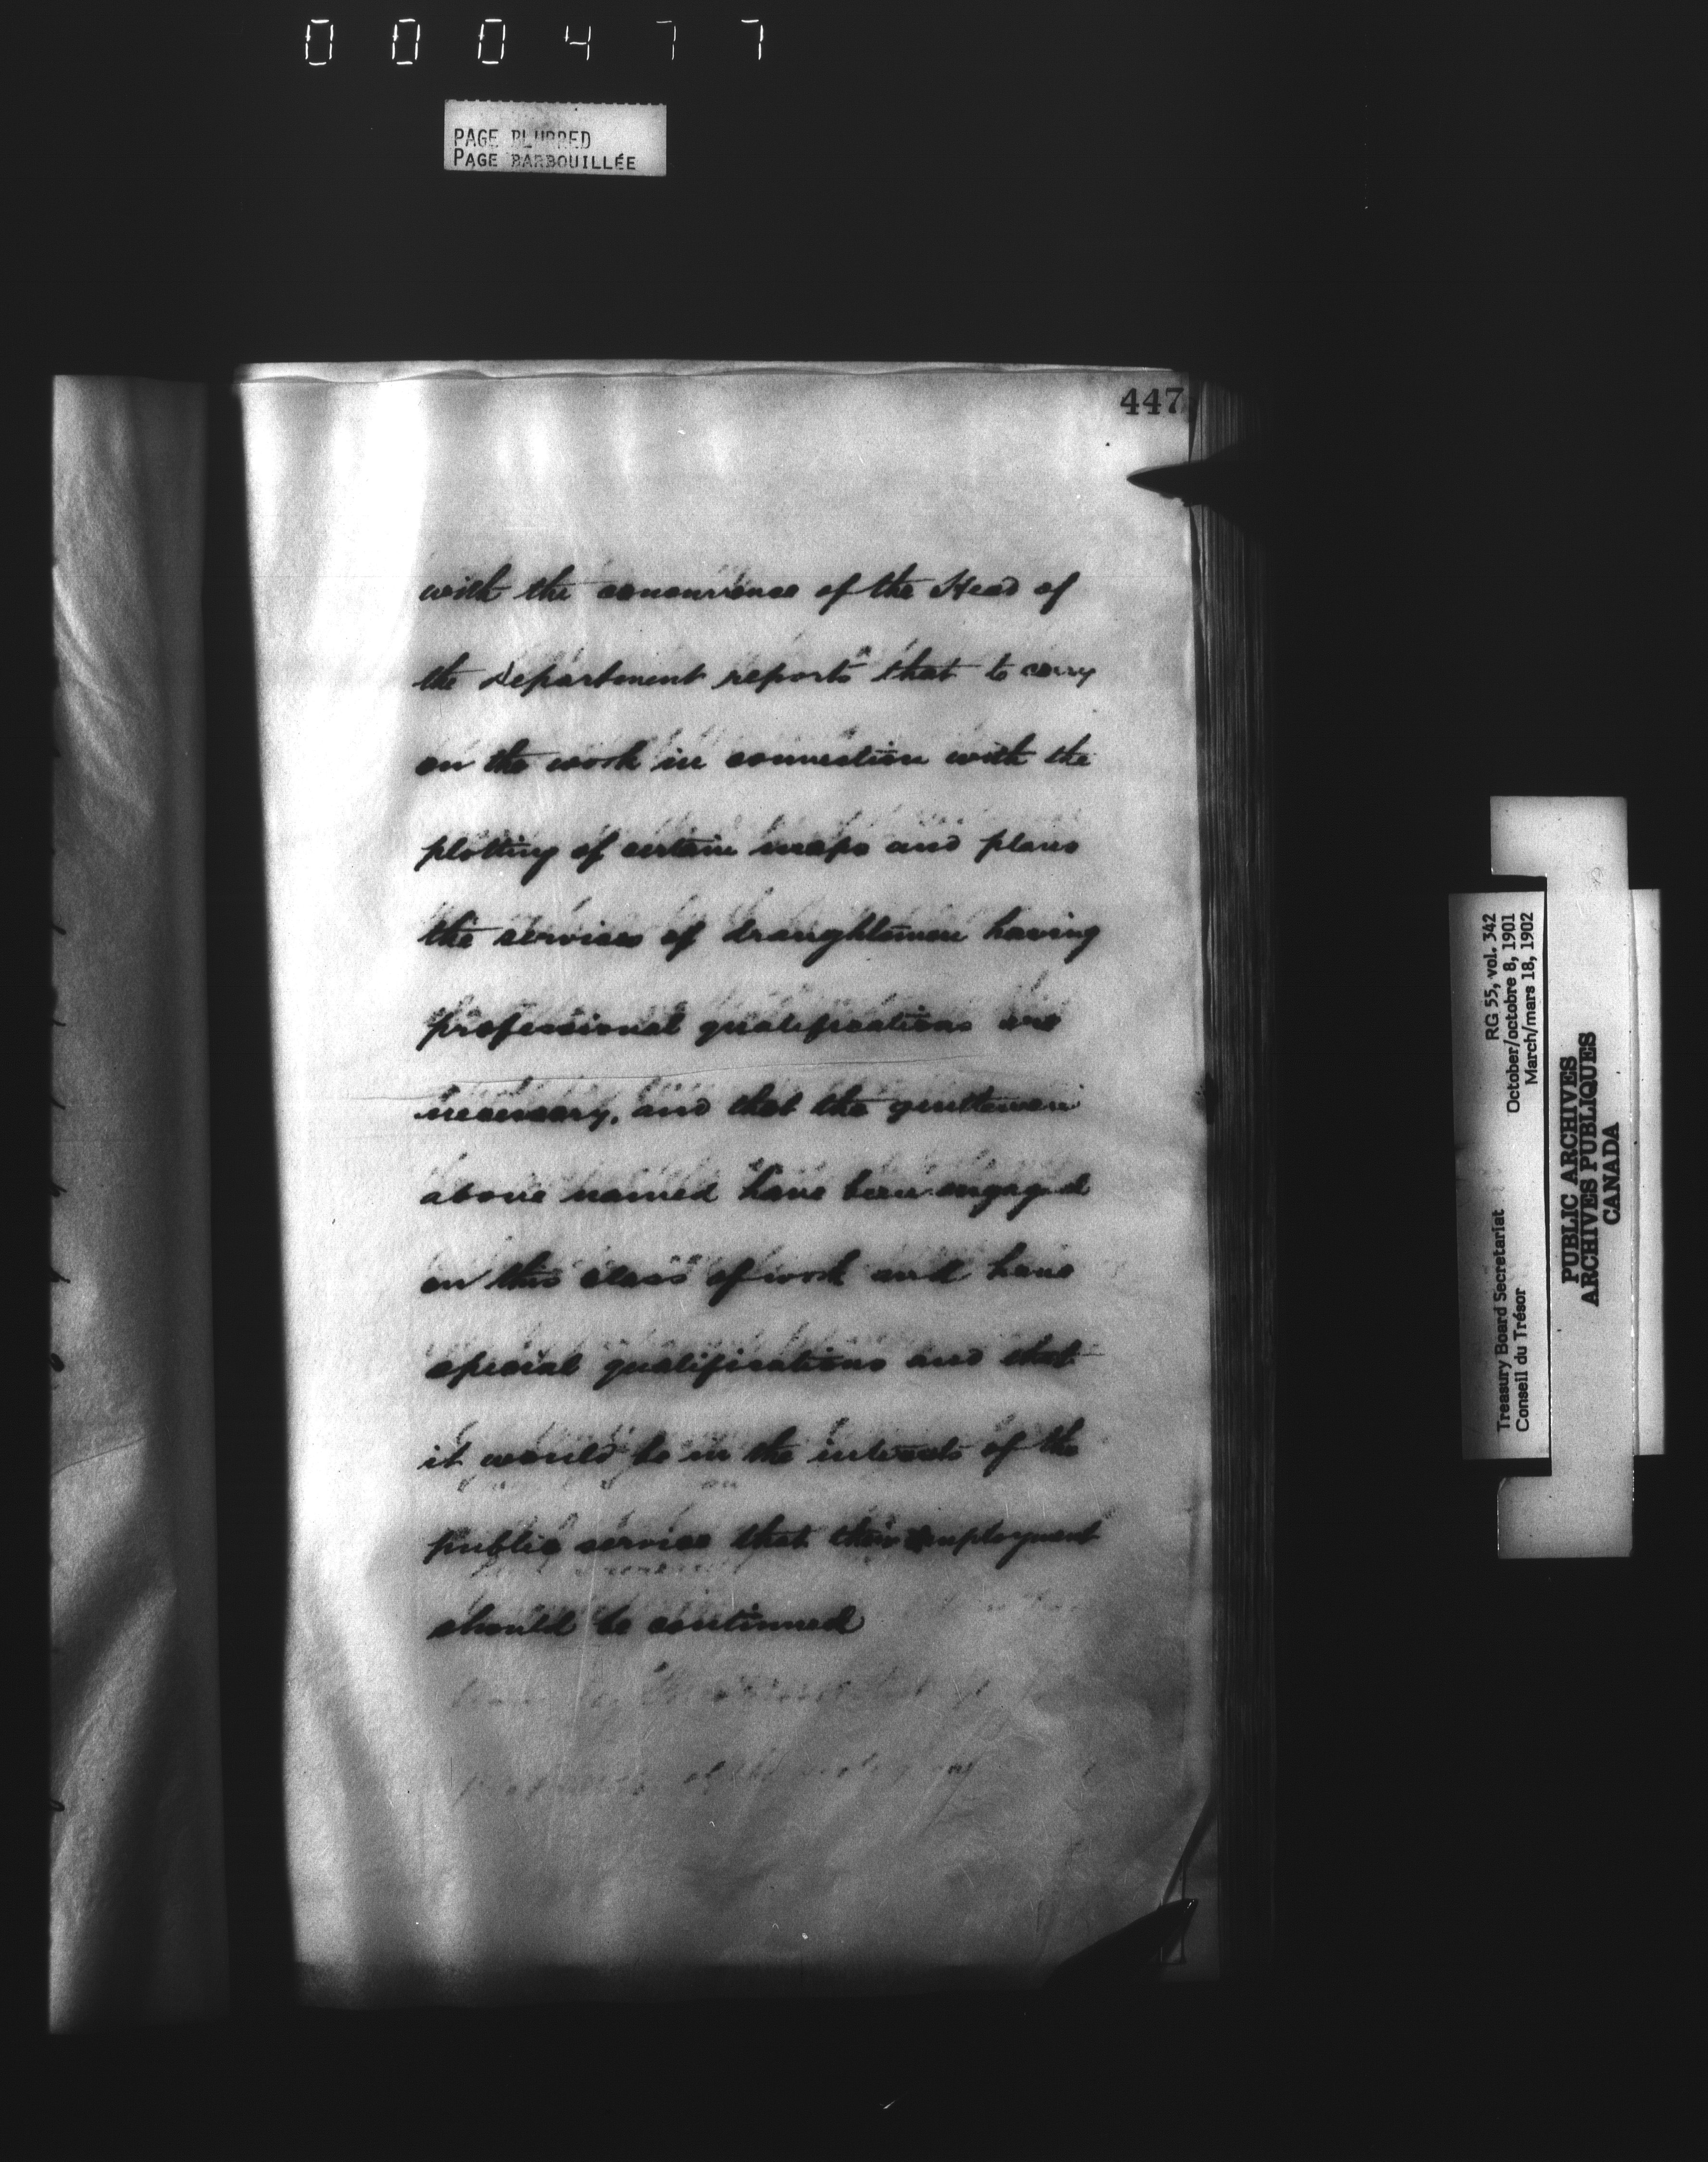 000477
PAGE BLURRED
PAGE BARBOUILLÉE
447
with the concurrence of the Head of
the department reports that to carry
on the work in connection with the
plotting of certain maps and plans
the services of draughtsmen having
professional qualifications are
necessary, and that the gentlemen
above named have been engaged
on this class of work and have
special qualifications and that
it would be in the interests of the
public service that their employment
should be continued
RG 55, vol. 342
October/octobre 8, 1901
March/mars 18, 1902
Treasury Board Secretariat
Conseil du Trésor
PUBLIC ARCHIVES
ARCHIVES PUBLIQUES
CANADA